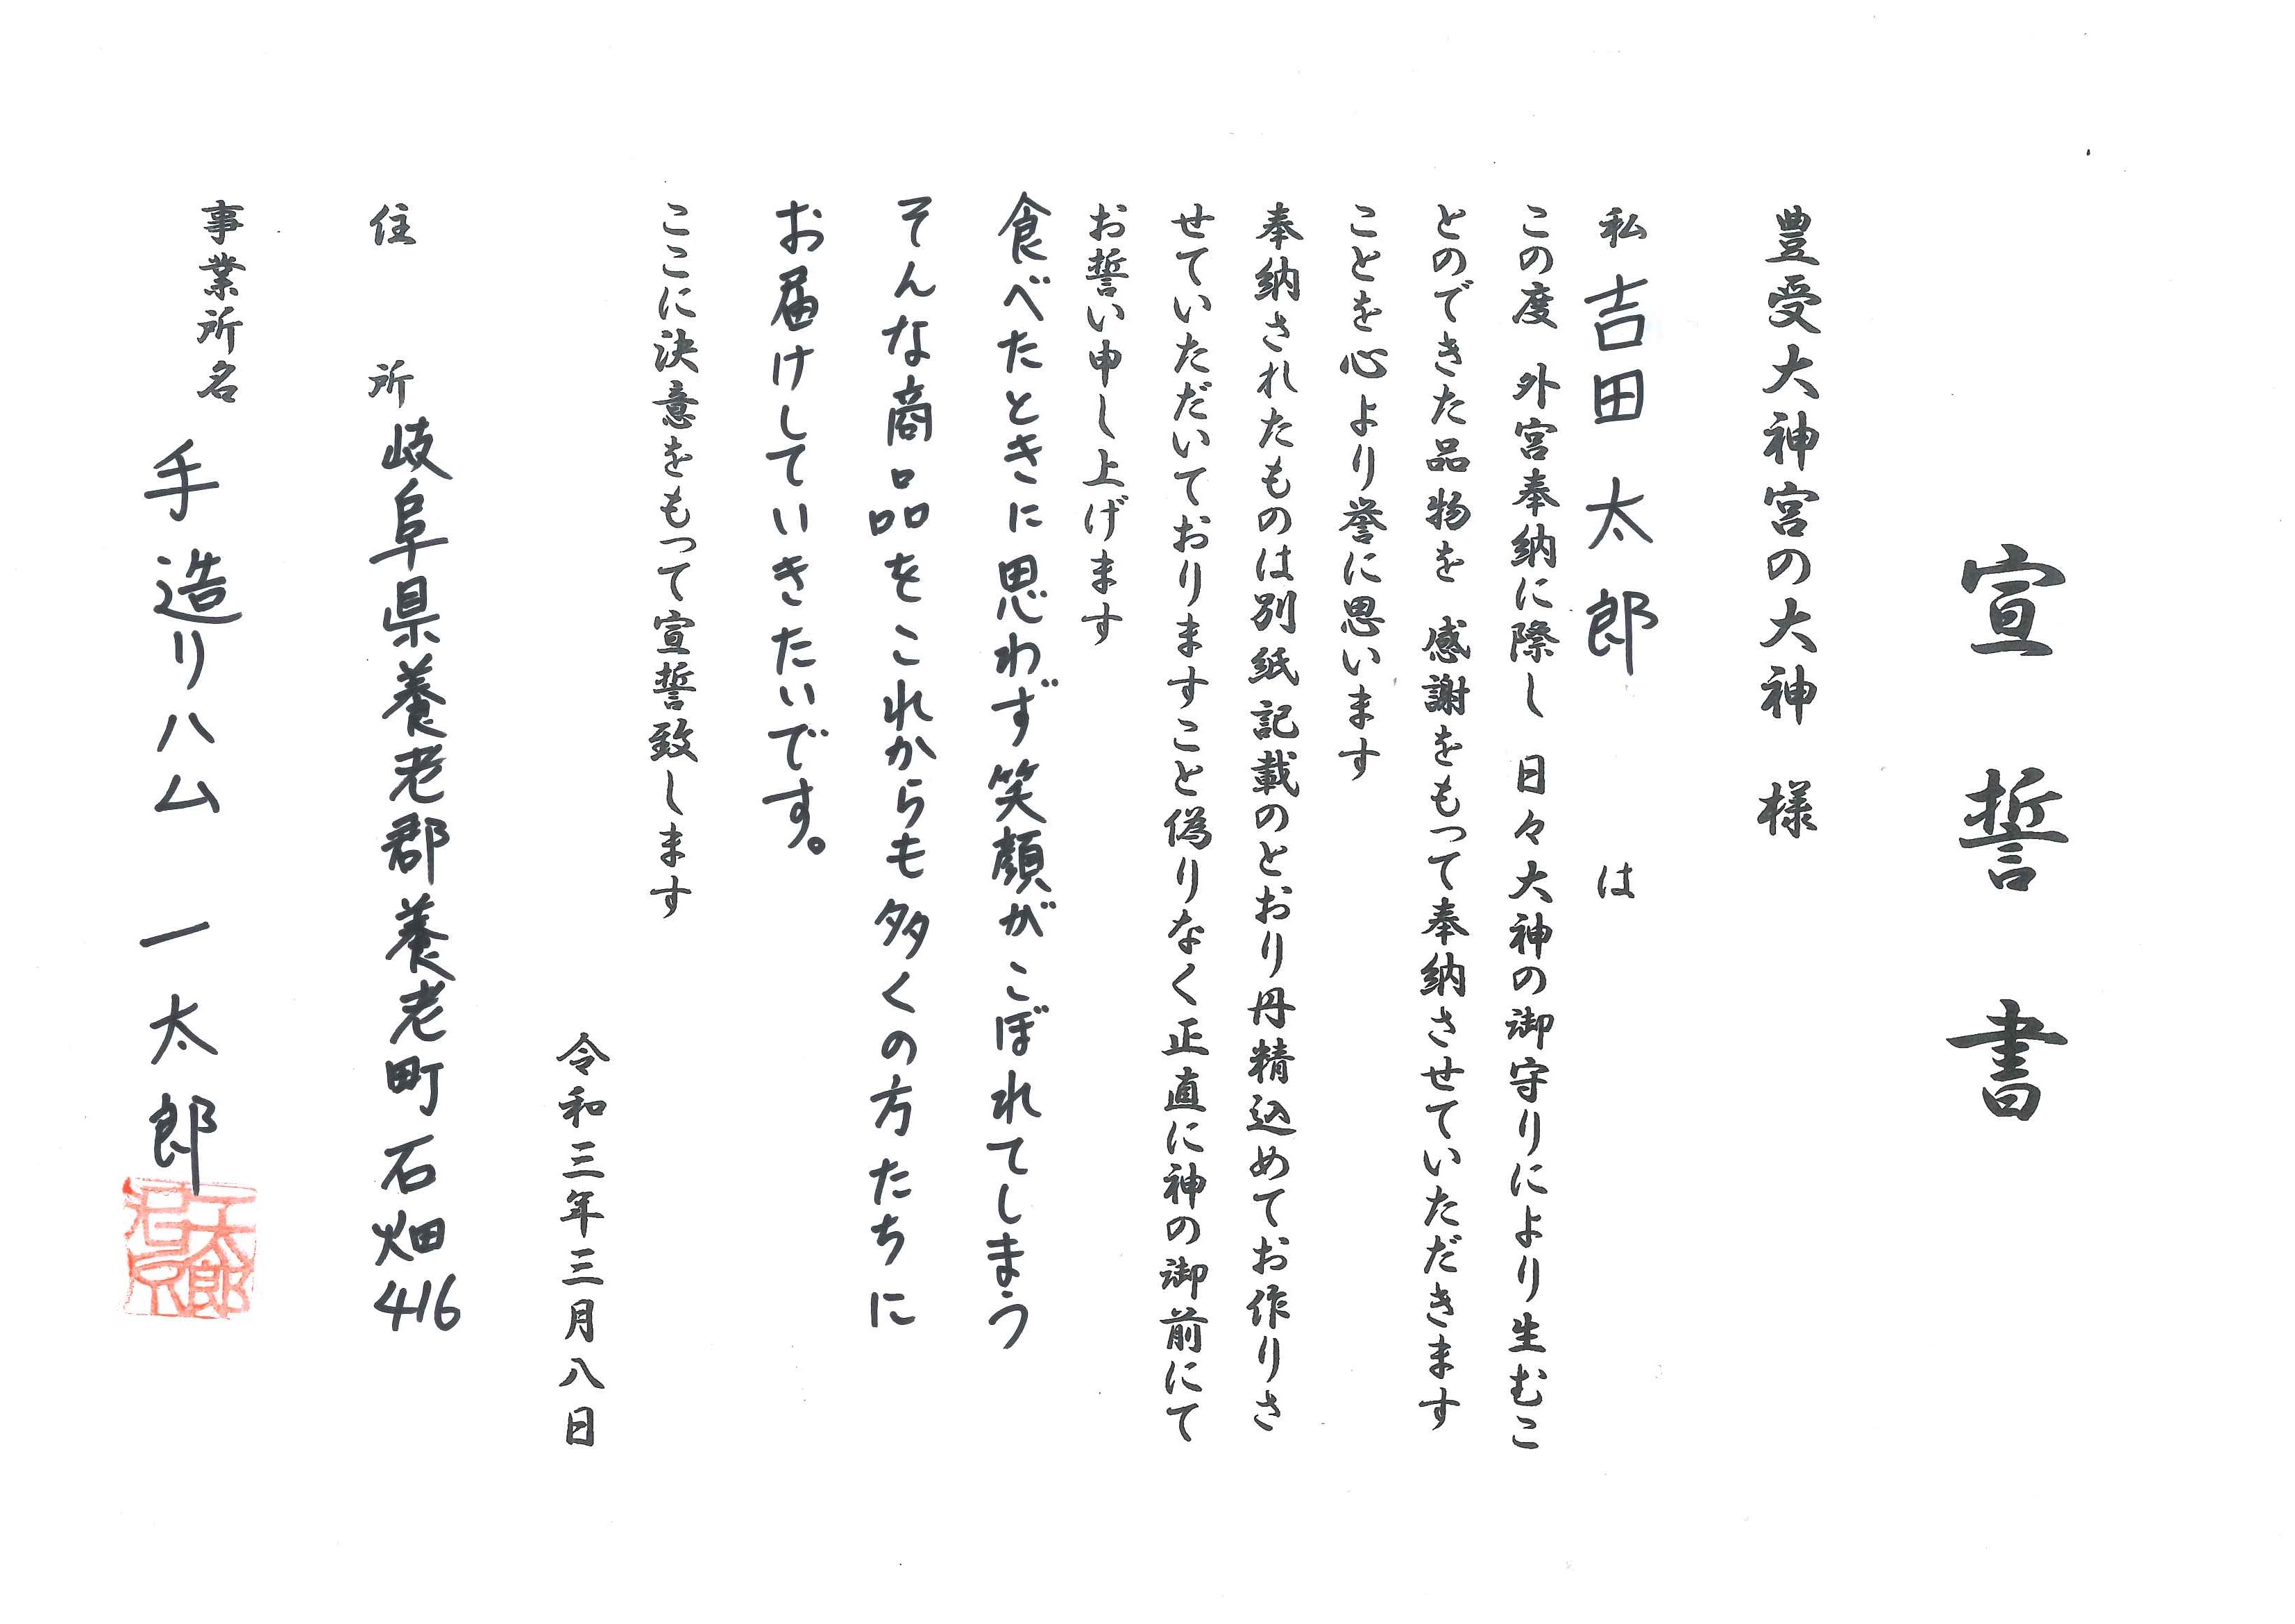 宣誓書
豊受大神宮の大神 様
私 吉田太郎 は
この度 外宮奉納に際し 日々大神の御守りにより生むこ
とのできた品物を 感謝をもって奉納させていただきます
ことを心より誉に思います
奉納されたものは別紙記載のとおり丹精込めてお作りさ
せていただいておりますこと偽りなく正直に神の御前にて
お誓い申し上げます
食べたときに思わず笑顔がこぼれてしまう
そんな商品をこれからも多くの方たちに
お届けしていきたいです。
ここに決意をもって宣誓致します
令和三年三月八日
住所 岐阜県養老郡養老町石畑416
事業所名 手造りハム 一太郎